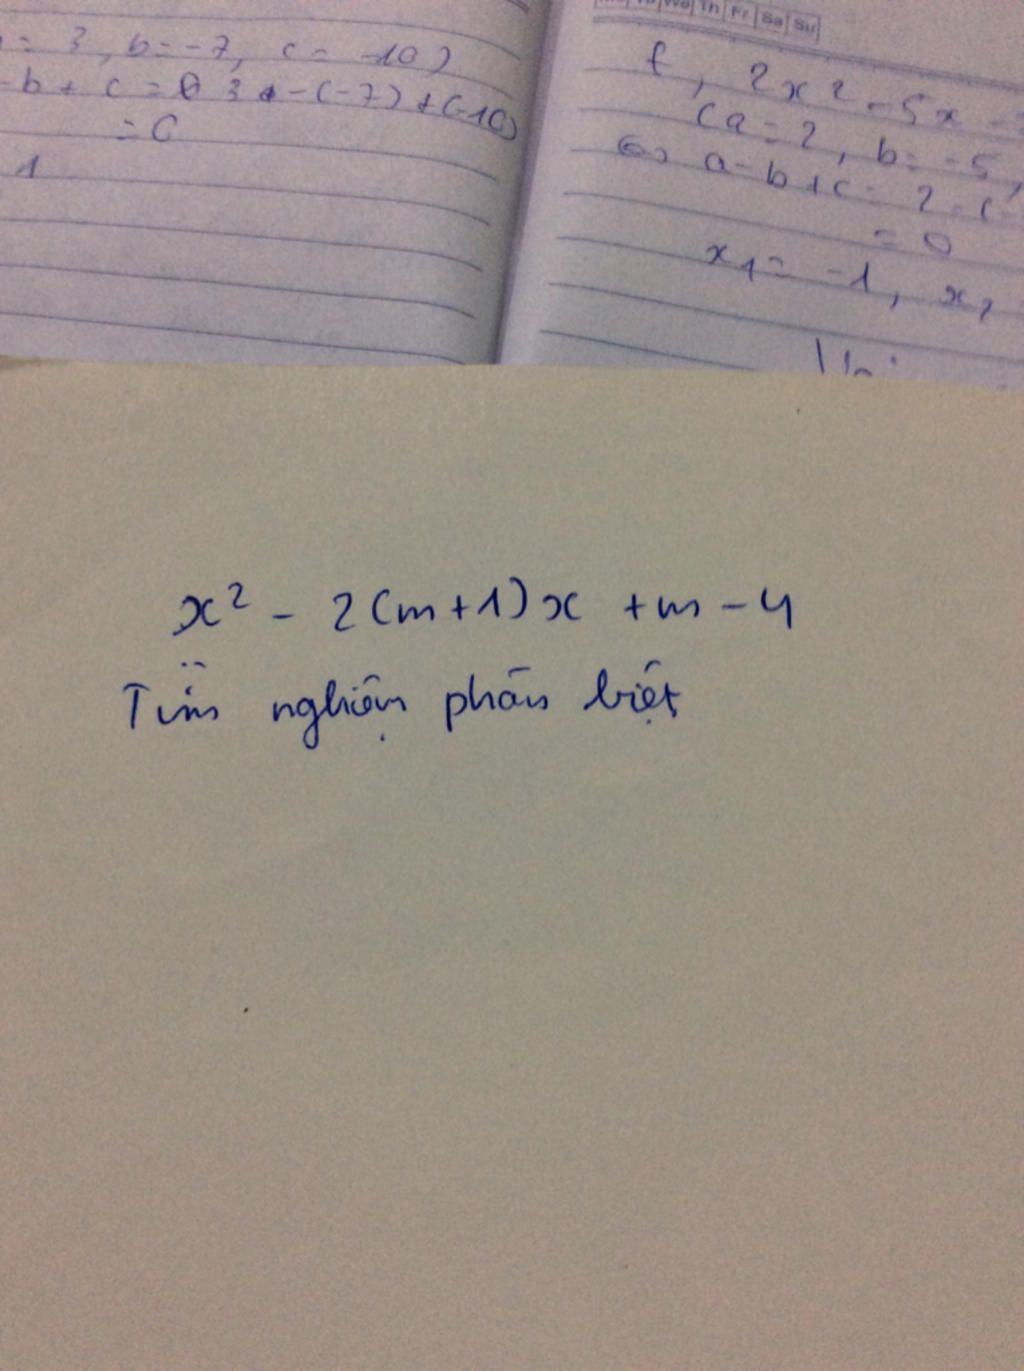 = 3, b = -7, c = -10)
-b + c = 3 - (-7) + (-10)
= 0
1
Th Fr Sa Su
f, 2x2 - 5x -
(a = 2, b = -5,
a - b + c = 2 - (-
= 0
x1 = -1, x2
x² - 2(m+1)x + m - 4
Tìm nghiệm phân biệt